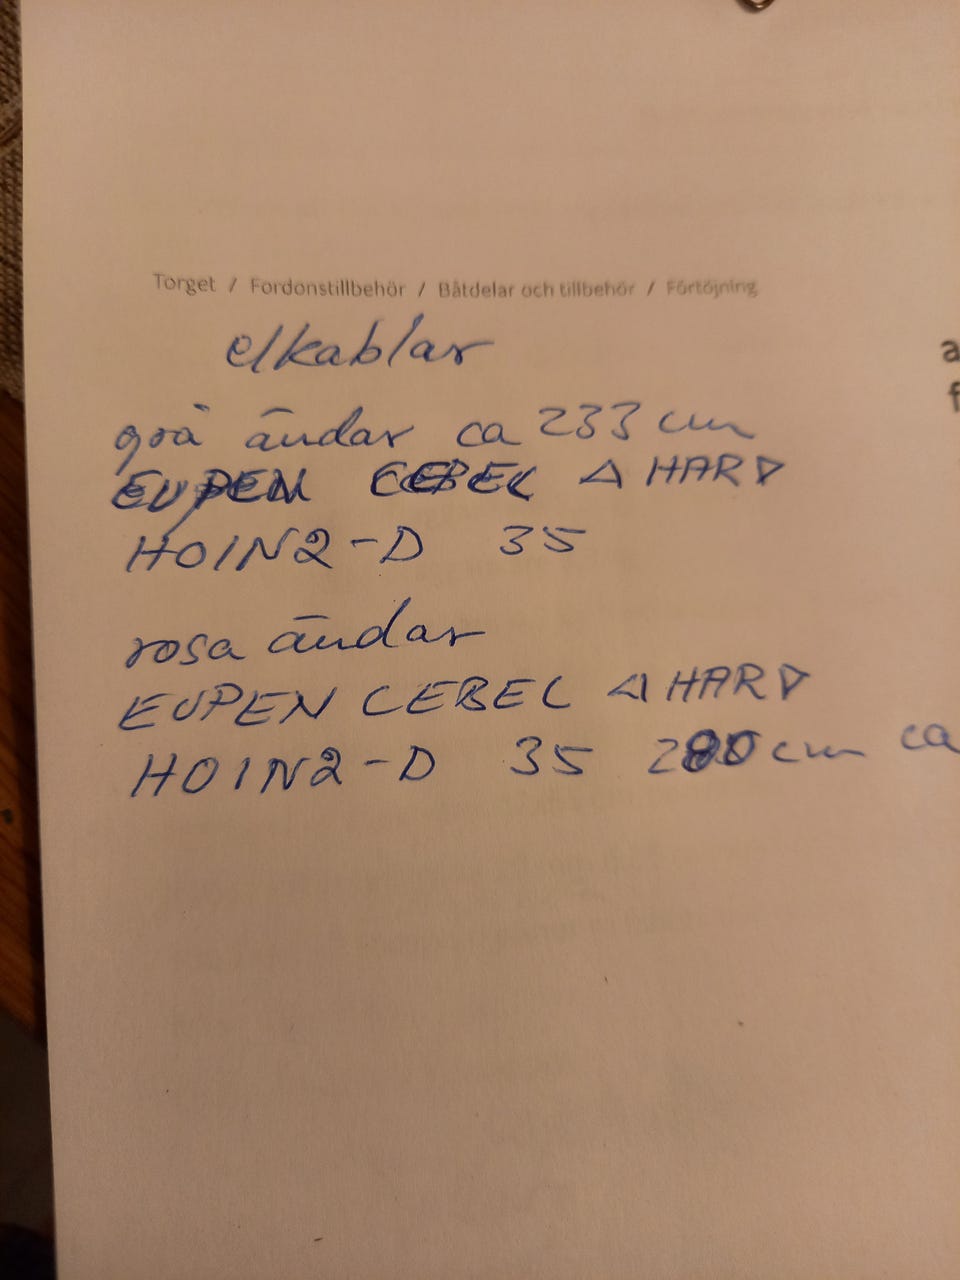 Torget / Fordonstillbehör / Båtdelar och tillbehör / Förtöjning
elkablar
grå ändar ca 233 cm
EUPEN CEBEL ◁ HAR ▷
HOIN2-D 35
rosa ändar
EUPEN CEBEL ◁ HAR ▷
HOIN2-D 35 280 cm ca
a
f